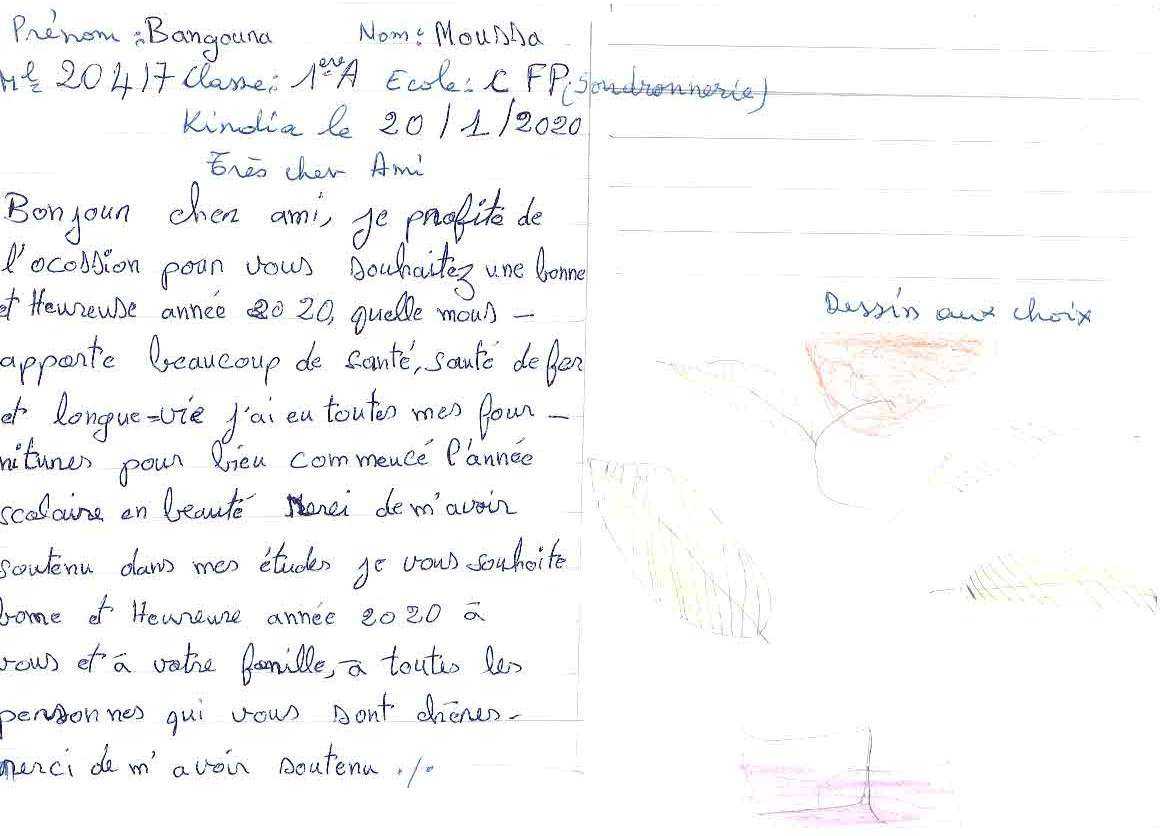 Prénom : Bangoura Nom : Moussa
Mle 20417 Classe : 1ère A Ecole : C FP (Sondronnerie)
Kindia le 20/1/2020
Très cher Ami
Bonjour cher ami, je profite de
l'ocossion pour vous souhaitez une bonne
et Heureuse année 2020, quelle nous -
apporte beaucoup de santé, santé de fer
et longue-vie j'ai eu toutes mes four -
nitures pour bien commencé l'année
scolaire en beauté Merci de m'avoir
soutenu dans mes études je vous souhoite
bonne et Heureuse année 2020 à
vous et à votre famille, à toutes les
personnes qui vous sont chères -
merci de m'avoir soutenu ./.
Dessin aux choix